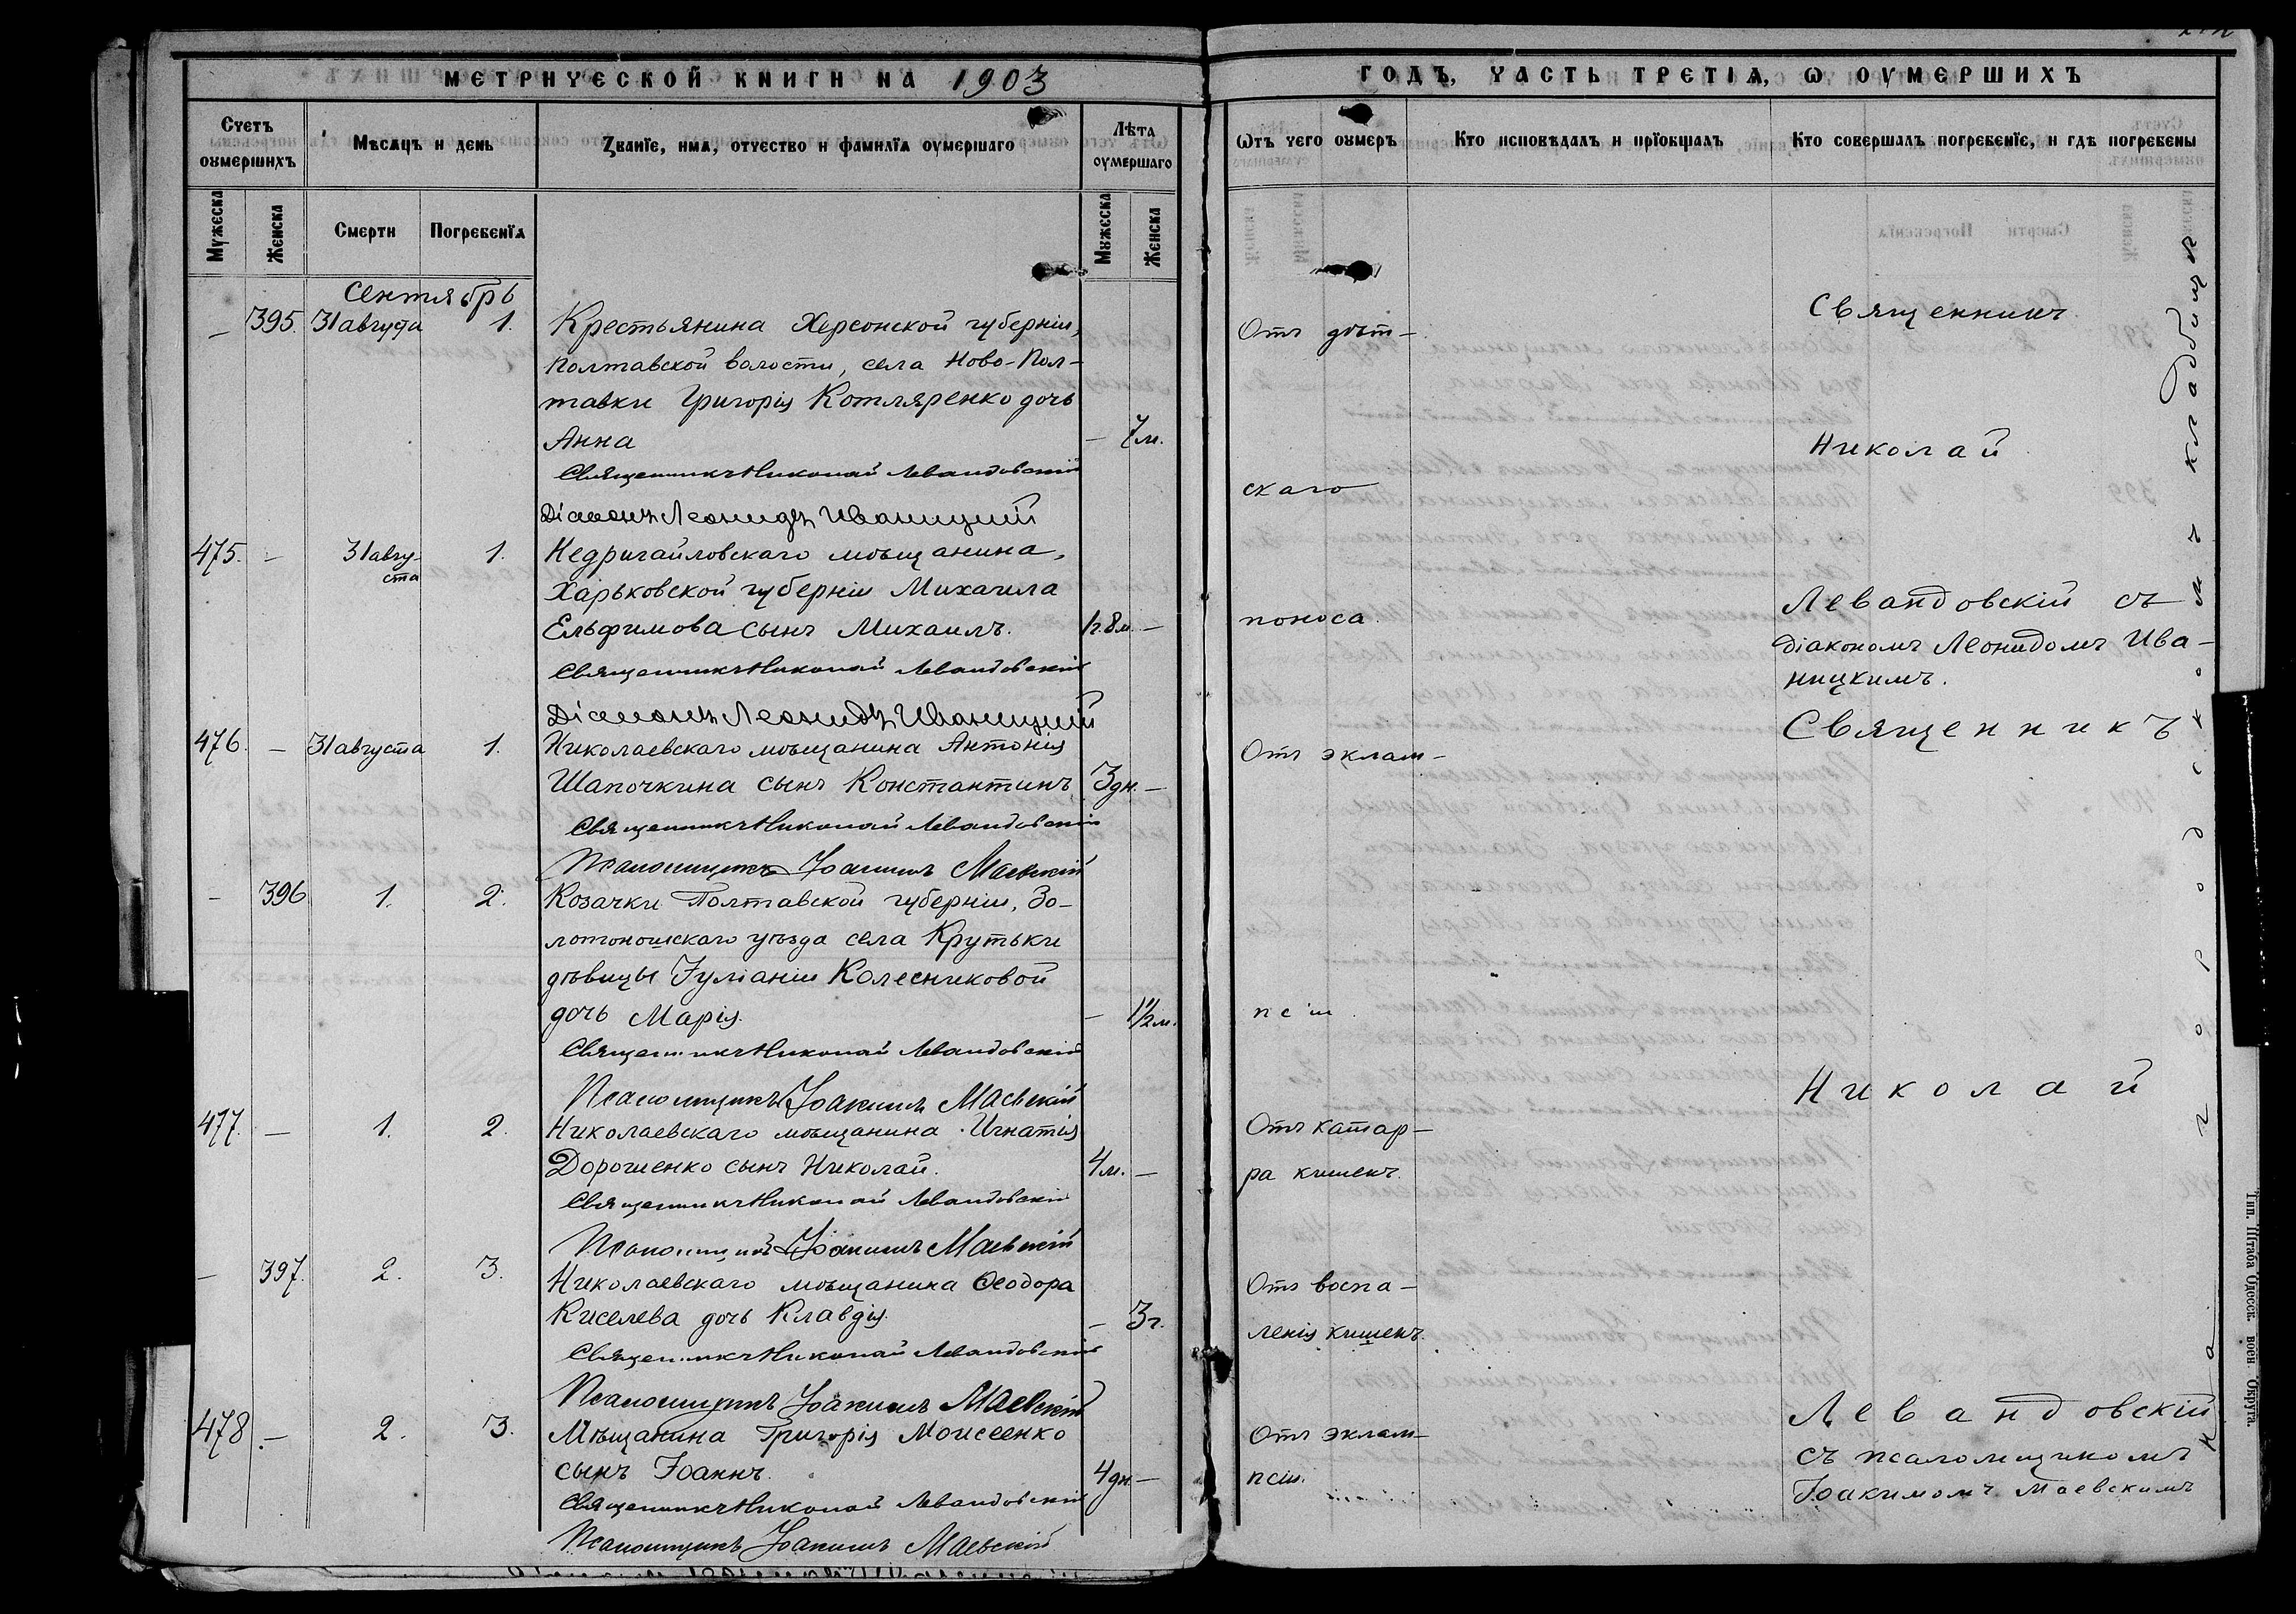 МЕТРИЧЕСКОЙ КНИГИ НА 1903
Счетъ оумершихъ
Мѣсяцъ и день
Званїе, имя, отчество и фамилїя оумершаго
Лѣта оумершаго
Мужеска
Женска
Смерти
Погребенїя
Мужеска
Женска
Сентябрь
— 395. 31 августа 1. Крестьянина Херсонской губерніи,
Полтавской волости, села Ново-Пол-
тавки Григорія Котляренко дочь
Анна — 7 м.
Священникъ Николай Левандовскій
Діаконъ Леонидъ Иваницкій
475. — 31 авгу- 1. Недригайловскаго мѣщанина,
ста
Харьковской губерніи Михаила
Ельфимова сынъ Михаилъ. 1г. 8м. —
Священникъ Николай Левандовскій
Діаконъ Леонидъ Иваницкій
476. — 31 августа 1. Николаевскаго мѣщанина Антонія
Шапочкина сынъ Константинъ 3 дн. —
Священникъ Николай Левандовскій
Псаломщикъ Іоакимъ Маевскій
— 396 1. 2. Козачки Полтавской губерніи, Зо-
лотоношскаго уѣзда села Крутьки
дѣвицы Іуліаніи Колесниковой
дочь Марія. — 1½ м.
Священникъ Николай Левандовскій
Псаломщикъ Іоакимъ Маевскій
477. — 1. 2. Николаевскаго мѣщанина Игнатія
Дорошенко сынъ Николай. 4 м. —
Священникъ Николай Левандовскій
Псаломщикъ Іоакимъ Маевскій
— 397. 2. 3. Николаевскаго мѣщанина Ѳеодора
Киселева дочь Клавдія. — 3 г.
Священникъ Николай Левандовскій
Псаломщикъ Іоакимъ Маевскій
478. — 2. 3. Мѣщанина Григорія Моисеенко
сынъ Іоаннъ. 4 дн. —
Священникъ Николай Левандовскій
Псаломщикъ Іоакимъ Маевскій
ГОДЪ, ЧАСТЬ ТРЕТІЯ, Ѡ ОУМЕРШИХЪ
Ѿтъ чего оумеръ
Кто исповѣдалъ и прїобщалъ
Кто совершалъ погребенїе, и гдѣ погребены
Отъ дѣт-
скаго
поноса.
Отъ эклам-
псіи.
Отъ катар-
ра кишекъ.
Отъ воспа-
ленія кишекъ.
Отъ эклам-
псіи.
Священникъ
Николай
Левандовскій съ
діакономъ Леонидомъ Ива-
ницкимъ.
Священникъ
Николай
Левандовскій
съ псаломщикомъ
Іоакимомъ Маевскимъ
На городскомъ кладбищѣ
Тип. Штаба Одесск. воен. Округа.